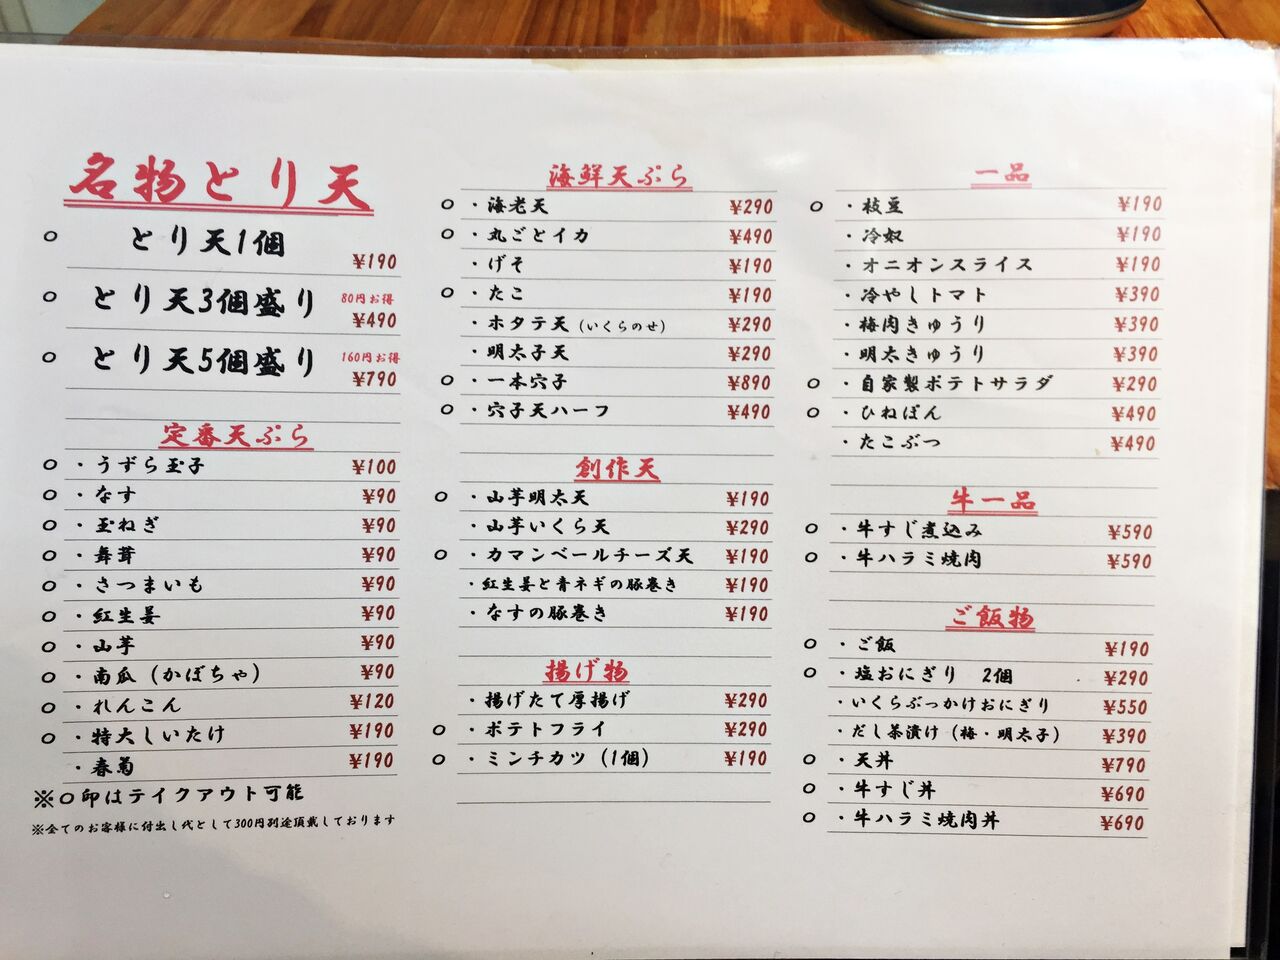 名物とり天
○ とり天1個
¥190
○ とり天3個盛り 80円お得
¥490
○ とり天5個盛り 160円お得
¥790
定番天ぷら
○ ・うずら玉子 ¥100
○ ・なす ¥90
○ ・玉ねぎ ¥90
○ ・舞茸 ¥90
○ ・さつまいも ¥90
○ ・紅生姜 ¥90
○ ・山芋 ¥90
○ ・南瓜（かぼちゃ） ¥90
○ ・れんこん ¥120
○ ・特大しいたけ ¥190
・春菊 ¥190
※○印はテイクアウト可能
※全てのお客様に付出し代として300円別途頂戴しております
海鮮天ぷら
○ ・海老天 ¥290
○ ・丸ごとイカ ¥490
・げそ ¥190
○ ・たこ ¥190
・ホタテ天（いくらのせ） ¥290
・明太子天 ¥290
○ ・一本穴子 ¥890
○ ・穴子天ハーフ ¥490
創作天
○ ・山芋明太天 ¥190
・山芋いくら天 ¥290
○ ・カマンベールチーズ天 ¥190
・紅生姜と青ネギの豚巻き ¥190
・なすの豚巻き ¥190
揚げ物
・揚げたて厚揚げ ¥290
○ ・ポテトフライ ¥290
○ ・ミンチカツ（1個） ¥190
一品
○ ・枝豆 ¥190
・冷奴 ¥190
・オニオンスライス ¥190
・冷やしトマト ¥390
・梅肉きゅうり ¥390
・明太きゅうり ¥390
○ ・自家製ポテトサラダ ¥290
○ ・ひねぽん ¥490
・たこぶつ ¥490
牛一品
○ ・牛すじ煮込み ¥590
○ ・牛ハラミ焼肉 ¥590
ご飯物
○ ・ご飯 ¥190
○ ・塩おにぎり 2個 ¥290
・いくらぶっかけおにぎり ¥550
・だし茶漬け（梅・明太子） ¥390
○ ・天丼 ¥790
○ ・牛すじ丼 ¥690
○ ・牛ハラミ焼肉丼 ¥690